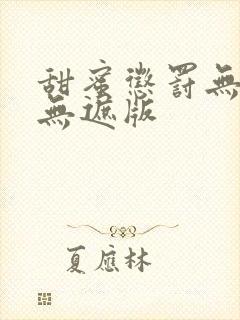 甜蜜懲罰無
無遮版
夏應林